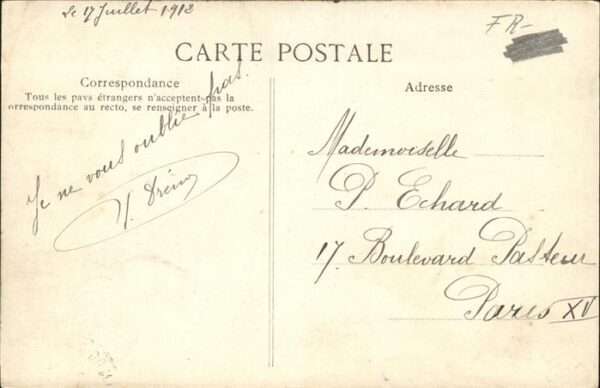 Le 17 Juillet 1912
FR-
CARTE POSTALE
Correspondance
Tous les pays étrangers n'acceptent pas la
orrespondance au recto, se renseigner à la poste.
Adresse
Je ne vous oublie pas.
Mademoiselle
P. Echard
17. Boulevard Pasteur
Paris XV